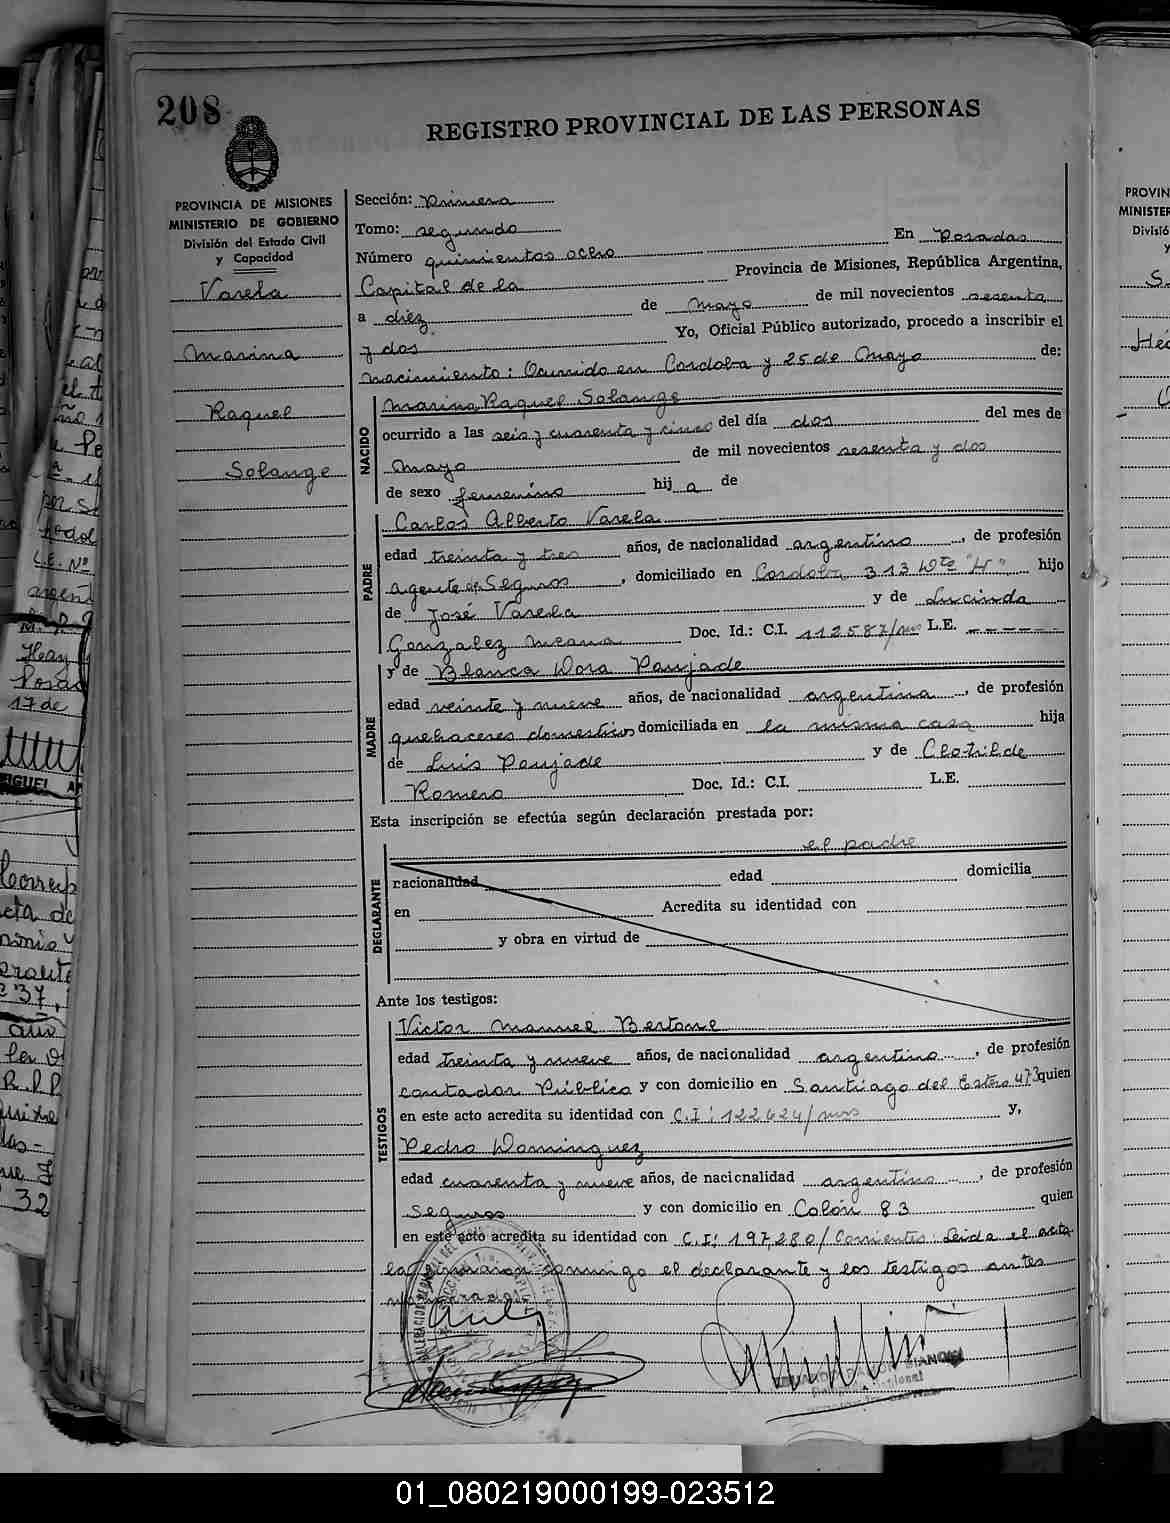 208
REGISTRO PROVINCIAL DE LAS PERSONAS
PROVINCIA DE MISIONES
MINISTERIO DE GOBIERNO
División del Estado Civil
y Capacidad
Varela
Marina
Raquel
Solange
Sección: Primera
Tomo: segundo
Número quinientos ocho En Posadas
Capital de la Provincia de Misiones, República Argentina,
a diez de mayo de mil novecientos sesenta
y dos Yo, Oficial Público autorizado, procedo a inscribir el
nacimiento: Ocurrido en Cordoba y 25 de Mayo de:
NACIDO
Marina Raquel Solange
ocurrido a las seis y cuarenta y cinco del día dos del mes de
mayo de mil novecientos sesenta y dos
de sexo femenino hij a de
PADRE
Carlos Alberto Varela
edad treinta y tres años, de nacionalidad argentino, de profesión
agente de Seguros, domiciliado en Cordoba 313 Dto "H" hijo
de José Varela y de Lucinda
Gonzalez Meana Doc. Id.: C.I. 112587/mis L.E. ------
y de Blanca Dora Poujade
MADRE
edad veinte y nueve años, de nacionalidad argentina, de profesión
quehaceres domesticos domiciliada en la misma casa hija
de Luis Poujade y de Clotilde
Romero Doc. Id.: C.I. L.E.
Esta inscripción se efectúa según declaración prestada por:
el padre
DECLARANTE
nacionalidad edad domicilia
en Acredita su identidad con
y obra en virtud de
Ante los testigos:
TESTIGOS
Victor Manuel Bertone
edad treinta y nueve años, de nacionalidad argentino, de profesión
contador Público y con domicilio en Santiago del Estero 473 quien
en este acto acredita su identidad con C.I: 122.624/mis y,
Pedro Dominguez
edad cuarenta y nueve años, de nacionalidad argentino, de profesión
seguros y con domicilio en Colón 83 quien
en este acto acredita su identidad con C.I: 197,280/Corrientes: Leida el acta
la firmaron conmigo el declarante y los testigos antes
01_080219000199-023512